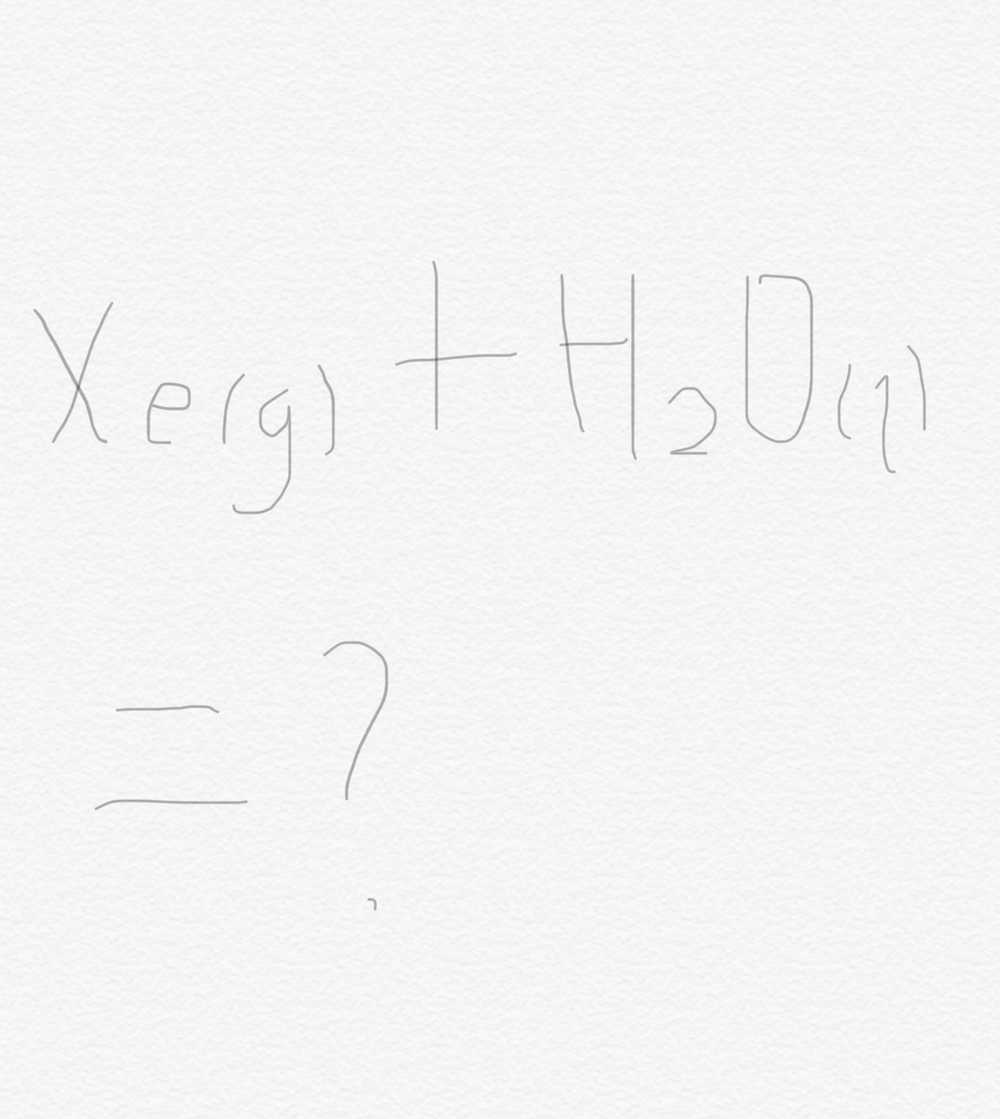 Xe(g) + H₂O(l)
= ?